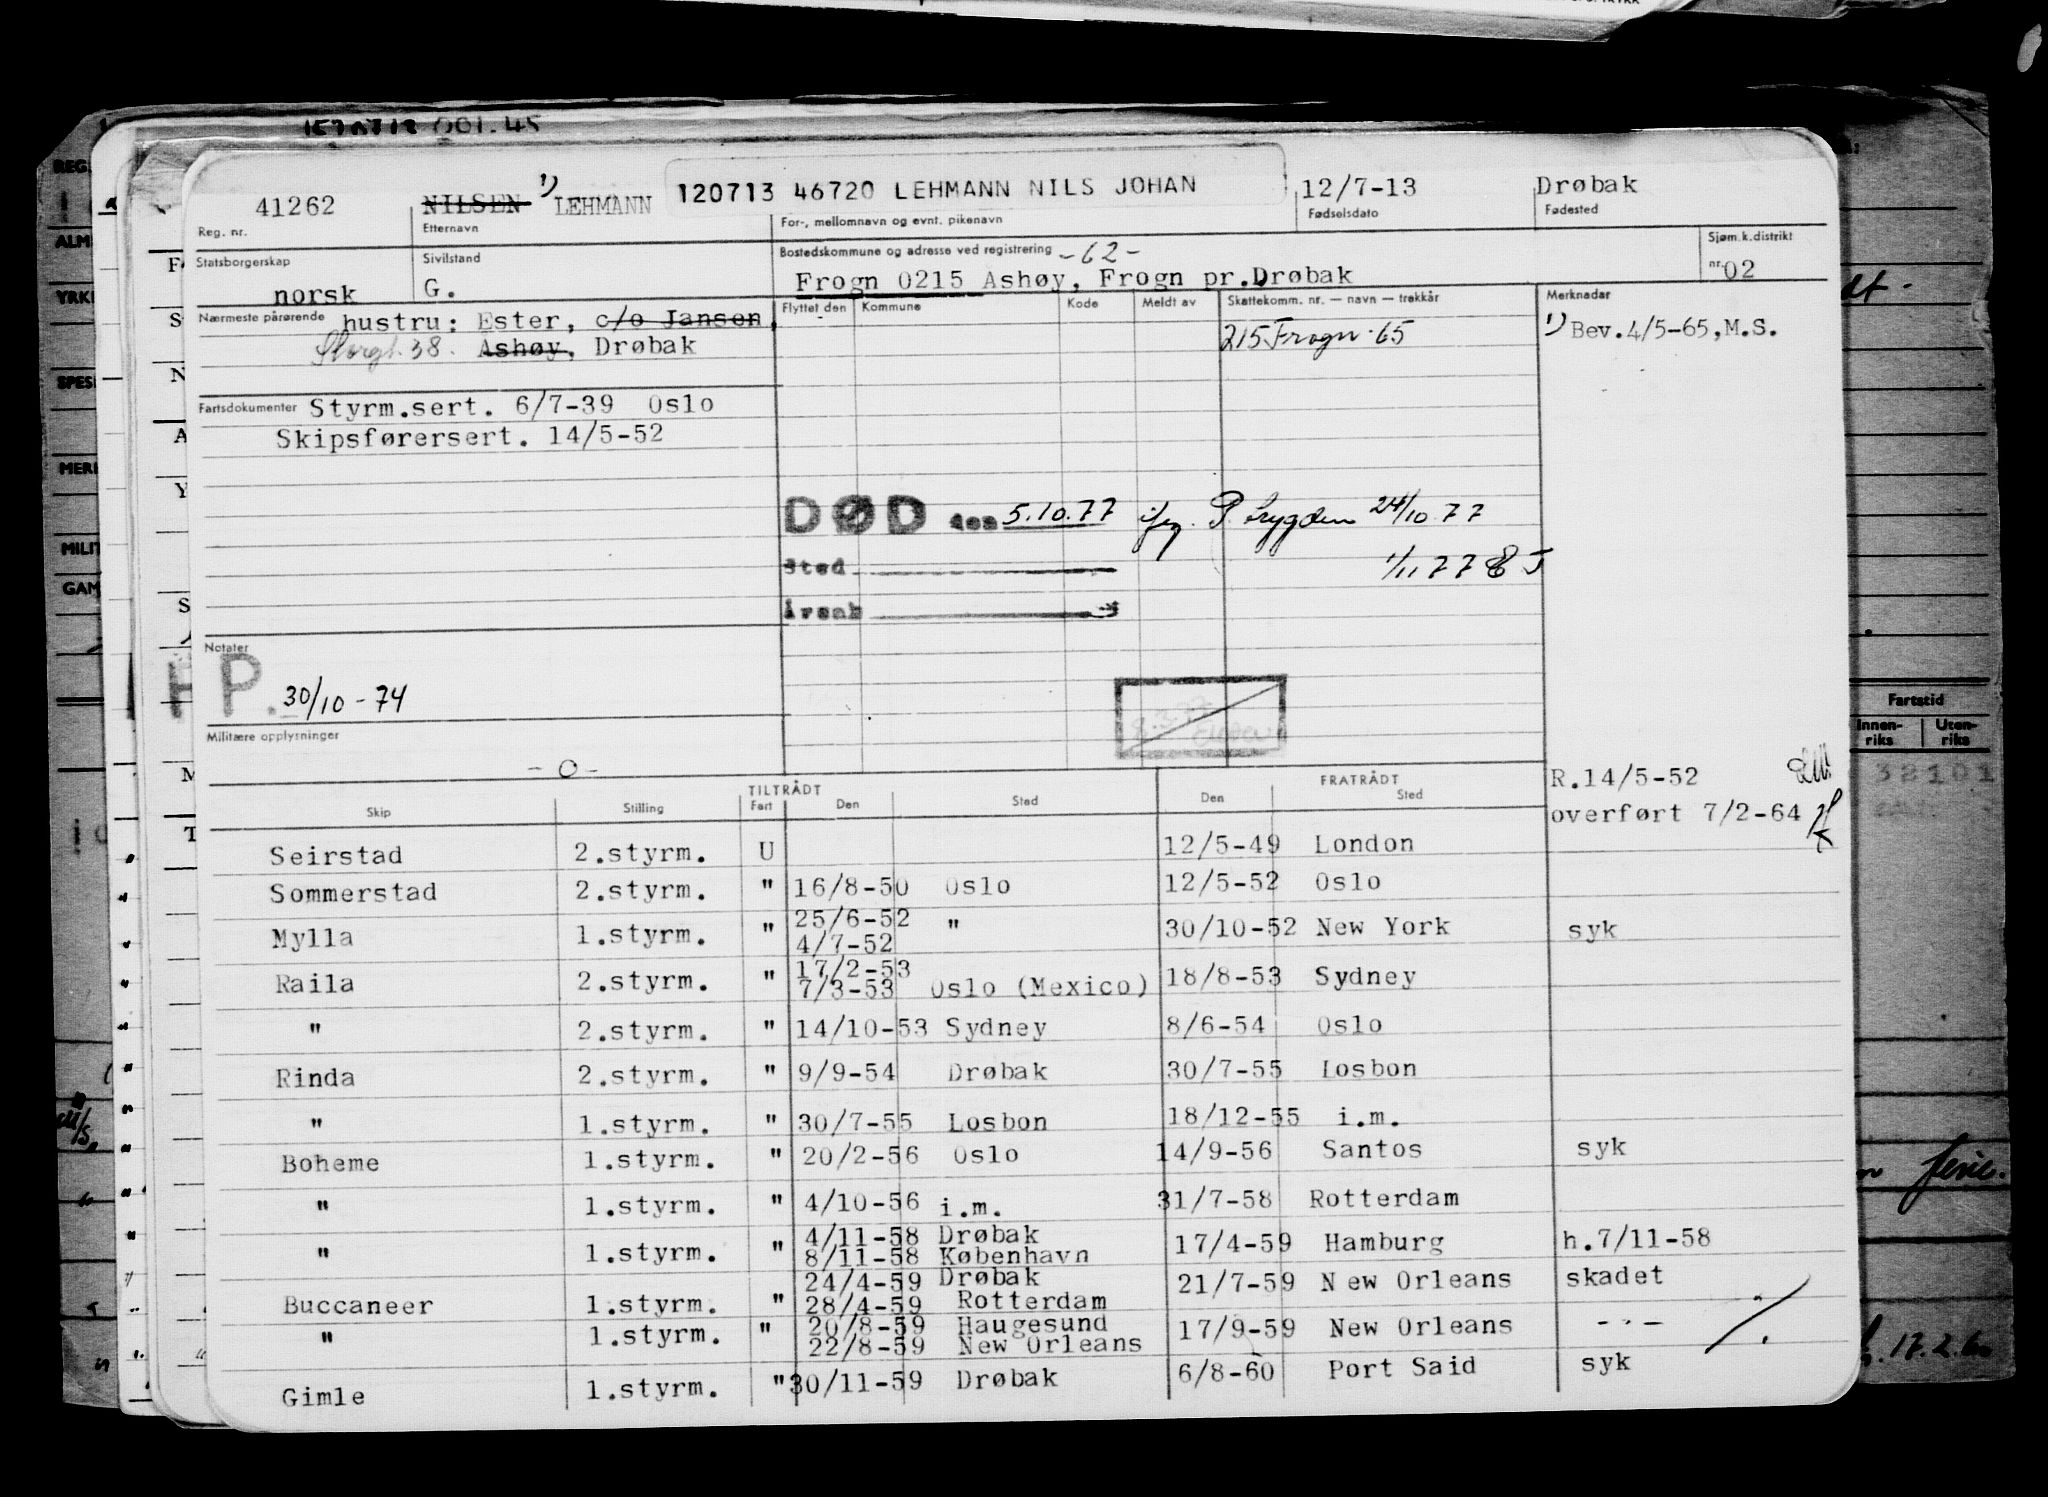 41262 NILSEN 1) LEHMANN 120713 46720 LEHMANN NILS JOHAN 12/7-13 Drøbak
Reg. nr. Etternavn For-, mellomnavn og evnt. pikenavn Fødselsdato Fødested
Statsborgerskap Sivilstand Bostedskommune og adresse ved registrering -62- Sjøm.k.distrikt
norsk G. Frogn 0215 Ashøy, Frogn pr.Drøbak nr. 02
Nærmeste pårørende hustru: Ester, c/o Jansen, Flyttet den Kommune Kode Meldt av Skattekomm. nr. — navn — trekkår Merknader
Storgt. 38. Ashøy, Drøbak 215 Frogn -65 1) Bev.4/5-65,M.S.
Fartsdokumenter Styrm.sert. 6/7-39 Oslo
Skipsførersert. 14/5-52
DØD den 5.10.77 P. trygden 24/10 77
Sted 1/11 77
Årsak
Notater
HP. 30/10-74
Militære opplysninger
-0-
TILTRÅDT FRATRÅDT R.14/5-52
Skip Stilling Fart Den Sted Den Sted
overført 7/2-64
Seirstad 2.styrm. U 12/5-49 London
Sommerstad 2.styrm. " 16/8-50 Oslo 12/5-52 Oslo
25/6-52
Mylla 1.styrm. " 4/7-52 " 30/10-52 New York syk
17/2-53
Raila 2.styrm. " 7/3-53 Oslo (Mexico) 18/8-53 Sydney
" 2.styrm. " 14/10-53 Sydney 8/6-54 Oslo
Rinda 2.styrm. " 9/9-54 Drøbak 30/7-55 Losbon
" 1.styrm. " 30/7-55 Losbon 18/12-55 i.m.
Boheme 1.styrm. " 20/2-56 Oslo 14/9-56 Santos syk
" 1.styrm. " 4/10-56 i.m. 31/7-58 Rotterdam
4/11-58 Drøbak
" 1.styrm. " 8/11-58 København 17/4-59 Hamburg h.7/11-58
24/4-59 Drøbak
Buccaneer 1.styrm. " 28/4-59 Rotterdam 21/7-59 New Orleans skadet
20/8-59 Haugesund
" 1.styrm. " 22/8-59 New Orleans 17/9-59 New Orleans - " -
Gimle 1.styrm. " 30/11-59 Drøbak 6/8-60 Port Said syk
Fartstid
Innenriks Utenriks
32101
ferie.
17.2.60